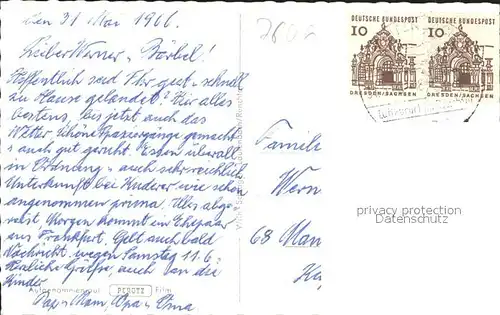 Den 31 Mai 1966.
Lieber Werner + Bärbel!
Hoffentlich seid Ihr gut + schnell
zu Hause gelandet! Hier alles
bestens, bis jetzt auch das
Wetter. Schöne Spaziergänge gemacht
+ auch gut geruht. Essen überall
in Ordnung + auch sehr reichlich
Unterkunft bei Huderer wie schon
angenommen prima. Alles abge-
reist, Morgen kommt ein Ehepaar
aus Frankfurt. Gebt auch bald
Nachricht wegen Samstag 11.6.
Herzliche Grüße, auch an die
Kinder
Pap + Mam, Opa + Oma
Aufgenommen auf PERUTZ Film
Famili
Wern
68 Man
DEUTSCHE BUNDESPOST
10
DRESDEN/SACHSEN
DEUTSCHE BUNDESPOST
10
DRESDEN/SACHSEN
Luftkurort
privacy protection
Datenschutz